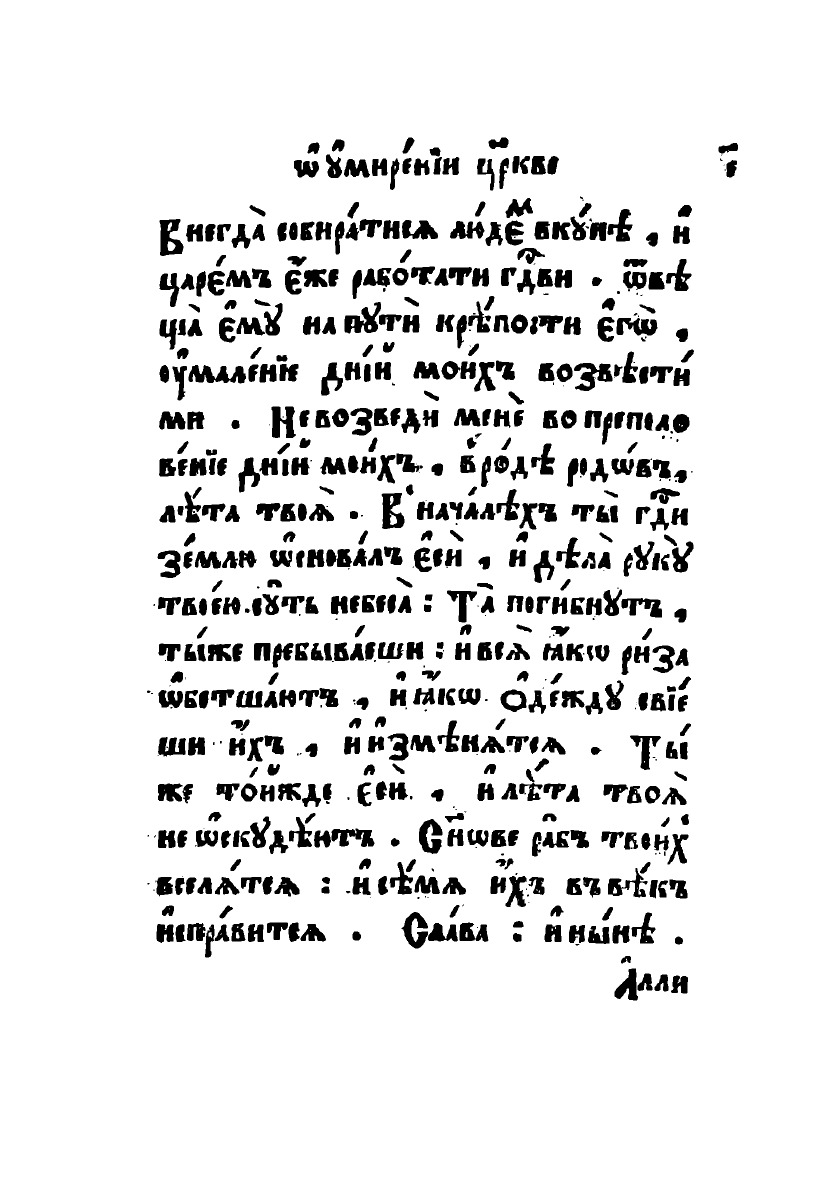 ѡ҆ ᲂу҆мире́нїи цр҃кве є҃
Внегда̀ собира́тисѧ лю́дє́мⷨ вкꙋ́пѣ , и҆
царе́мъ є҆́же рабо́тати гдⷭ҇ви . ѿвѣ
ща̀ є҆мꙋ̀ на пꙋтѝ крѣ́пости є҆гѡ̀ ,
ᲂу҆мале́нїе дні́й мои́хъ возвѣстѝ
ми . Не возведѝ менѐ во преполо
ве́нїе дні́й мои́хъ , в̾ ро́дѣ родѡ́въ ,
лѣ́та твоѧ̀ . В̾ нача́лѣхъ ты̀ гдⷭ҇и
зе́млю ѡ҆снова́лъ є҆сѝ , и҆ дѣла̀ рꙋкꙋ̀
твоє́ю сꙋ́ть небеса̀ : Та̑ поги́бнꙋтъ ,
ты́же пребыва́еши : и҆ всѧ̀ ꙗ҆́кѡ ри́за
ѡ҆бетша́ютъ , и҆ ꙗ҆́кѡ ѻ҆де́ждꙋ свїе́
ши и҆́хъ , и҆ и҆змѣнѧ́тсѧ . Ты́
же то́йжде є҆сѝ , и҆ лѣ́та твоѧ̀
не ѡ҆скꙋдѣ́ютъ . Сн҃ѡве ра̑бъ твои́хъ
вселѧ́тсѧ : и҆ сѣ́мѧ и҆́хъ въ вѣ́къ
и҆спра́витсѧ . Сла́ва : и҆ ны́нѣ .
А҆лли